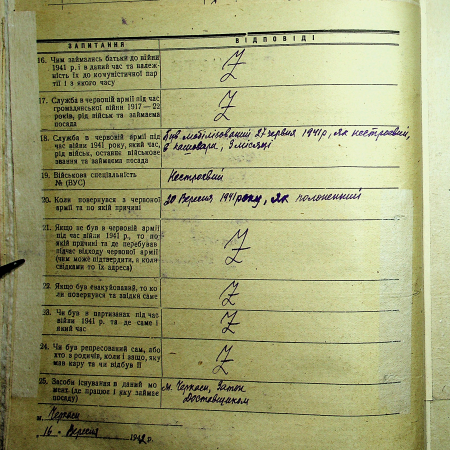 ЗАПИТАННЯ ВІДПОВІДІ
16. Чим займались батьки до війни
1941 р. і в даний час та належ-
ність їх до комуністичної пар-
тії і з якого часу
Z
17. Служба в червоній армії під час
громадянської війни 1917—22
років, рід військ та займаєма
посада
Z
18. Служба в червоній армії під
час війни 1941 року, який час,
рід військ, останнє військове
звання та займаєма посада
був мобілізований 27 червня 1941 р, як нестроевий,
в кашовара, 3 місяці
19. Військова спеціальність
№ (ВУС)
Нестроевий
20. Коли повернувся з червоної
армії та по якій причині
20 Вересня 1941 року, як полонений
21. Якщо не був в червоній армії
під час війни 1941 р., то по
якій причині та де перебував
підчас відходу червоної армії
(чим може підтвердити, а коли
свідками то їх адреса)
Z
22. Якщо був евакуйований, то ко-
ли повернувся та звідки саме
Z
23. Чи був в партизанах під час
війни 1941 р. та де саме і
який час
Z
24. Чи був репресований сам, або
хто з родичів, коли і защо, яку
мав кару та чи відбув її
Z
25. Засоби існування в даний мо-
мент (де працює і яку займає
посаду)
м. Черкаси, Затон
Доставщиком
м. Черкаси
16 - Вересня 1942 р.